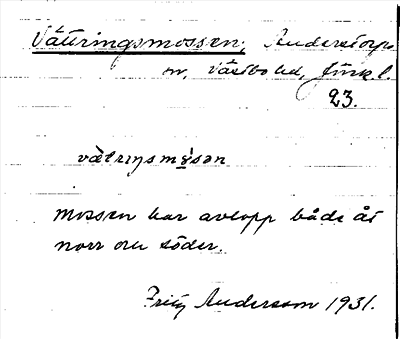 Vättringsmossen, Anderstorps
sn, Västbo hd, Jönk l.
23.
vätriŋsmɷsən
Mossen har avlopp både åt
norr och söder.
Fritz Andersson 1931.